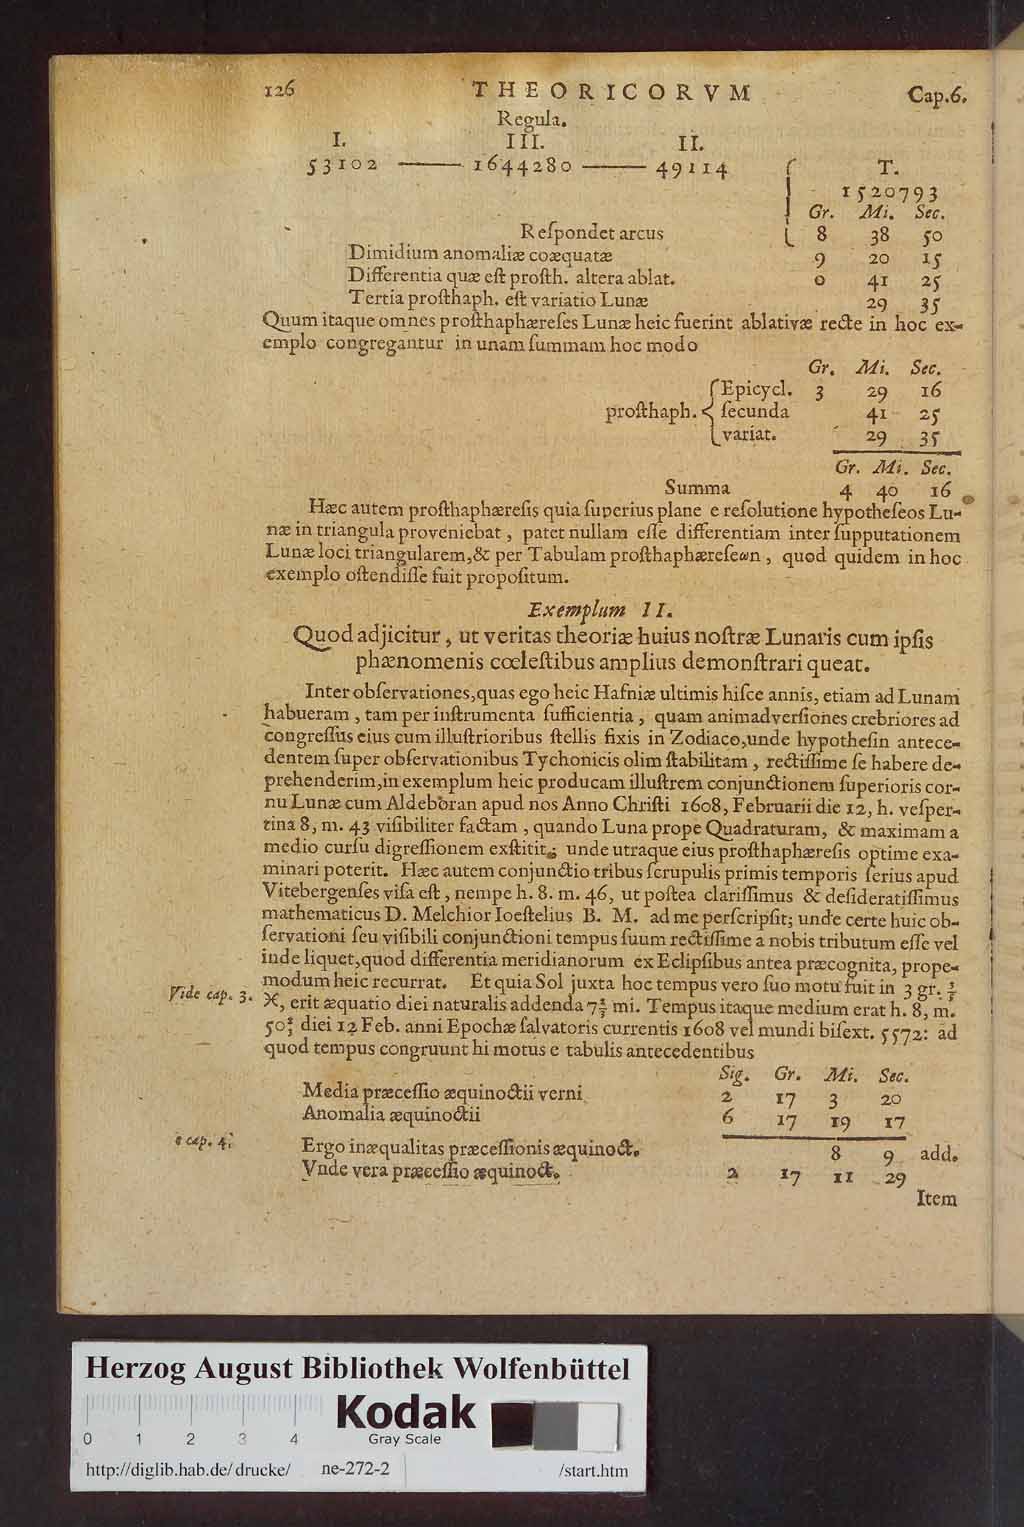 126 THEORICORVM Cap.6.
Regula.
I. III. II.
53102 —— 1644280 —— 49114 { T.
1520793
Gr. Mi. Sec.
Reſpondet arcus 8 38 50
Dimidium anomaliæ coæquatæ 9 20 15
Differentia quæ eſt proſth. altera ablat. 0 41 25
Tertia proſthaph. eſt variatio Lunæ 29 35
Quum itaque omnes proſthaphæreſes Lunæ heic fuerint ablativæ recte in hoc ex-
emplo congregantur in unam ſummam hoc modo
Gr. Mi. Sec.
{ Epicycl. 3 29 16
proſthaph. ſecunda 41 25
variat. 29 35
Gr. Mi. Sec.
Summa 4 40 16
Hæc autem proſthaphæreſis quia ſuperius plane e reſolutione hypotheſeos Lu-
næ in triangula proveniebat, patet nullam eſſe differentiam inter ſupputationem
Lunæ loci triangularem,& per Tabulam proſthaphæreſeωn, quod quidem in hoc
exemplo oſtendiſſe fuit propoſitum.
Exemplum II.
Quod adjicitur, ut veritas theoriæ huius noſtræ Lunaris cum ipſis
phænomenis cœleſtibus amplius demonſtrari queat.
Inter obſervationes,quas ego heic Hafniæ ultimis hiſce annis, etiam ad Lunam
habueram, tam per inſtrumenta ſufficientia, quam animadverſiones crebriores ad
congreſſus eius cum illuſtrioribus ſtellis fixis in Zodiaco,unde hypotheſin antece-
dentem ſuper obſervationibus Tychonicis olim ſtabilitam, rectiſſime ſe habere de-
prehenderim,in exemplum heic producam illuſtrem conjunctionem ſuperioris cor-
nu Lunæ cum Aldeboran apud nos Anno Chriſti 1608, Februarii die 12, h. veſper-
tina 8, m. 43 viſibiliter factam, quando Luna prope Quadraturam, & maximam a
medio curſu digreſſionem exſtitit; unde utraque eius proſthaphæreſis optime exa-
minari poterit. Hæc autem conjunctio tribus ſcrupulis primis temporis ſerius apud
Vitebergenſes viſa eſt, nempe h. 8. m. 46, ut poſtea clariſſimus & deſideratiſſimus
mathematicus D. Melchior Ioeſtelius B. M. ad me perſcripſit; unde certe huic ob-
ſervationi ſeu viſibili conjunctioni tempus ſuum rectiſſime a nobis tributum eſſe vel
inde liquet,quod differentia meridianorum ex Eclipſibus antea præcognita, prope-
modum heic recurrat. Et quia Sol juxta hoc tempus vero ſuo motu fuit in 3 gr.
Vide cap. 3. ♓, erit æquatio diei naturalis addenda 7 mi. Tempus itaque medium erat h. 8, m.
50 diei 12 Feb. anni Epochæ ſalvatoris currentis 1608 vel mundi biſext. 5572: ad
quod tempus congruunt hi motus e tabulis antecedentibus
Sig. Gr. Mi. Sec.
Media præceſſio æquinoctii verni 2 17 3 20
Anomalia æquinoctii 6 17 19 17
e cap. 4. Ergo inæqualitas præceſſionis æquinoct. 8 9 add.
Vnde vera præceſſio æquinoct. 2 17 11 29
Item
Herzog August Bibliothek Wolfenbüttel
Kodak
0 1 2 3 4 Gray Scale
http://diglib.hab.de/drucke/ ne-272-2 /start.htm